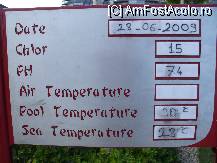 © AmFostAcolo.ro
Date 28-06-2009
Chlor 15
PH 74
Air Temperature
Pool Temperature
Sea Temperature 28°C